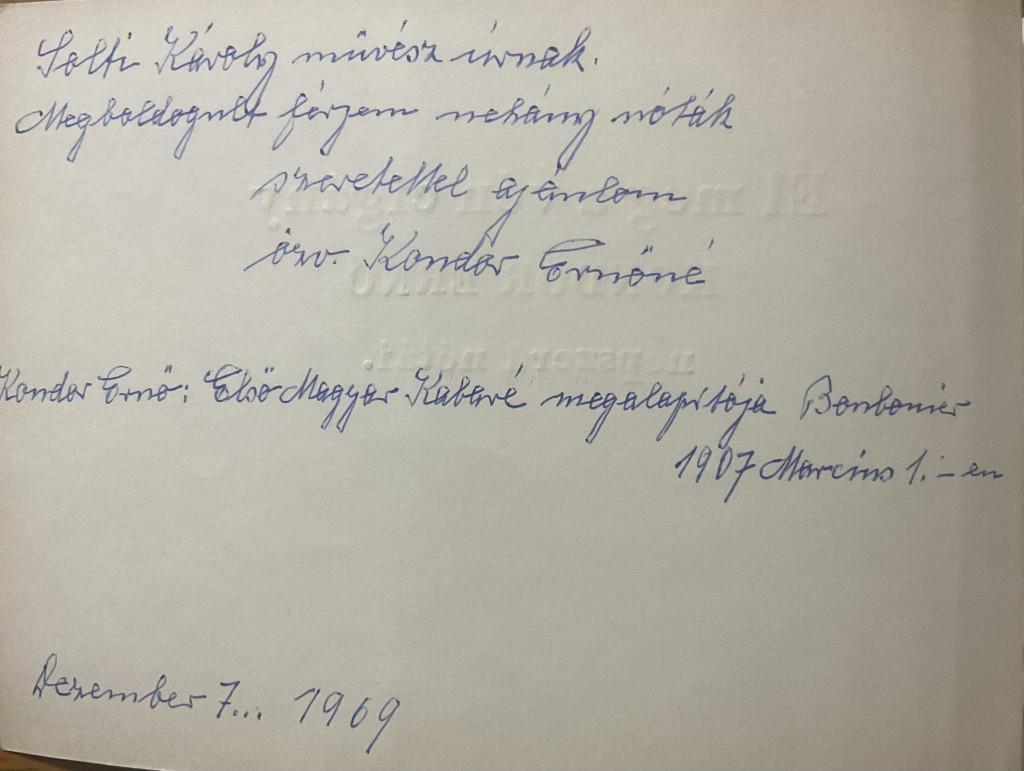 Solti Károly művész úrnak.
Megboldogult férjem nehány nóták
szeretettel ajánlom
özv. Kondor Ernőné
Kondor Ernő: Első Magyar Kabaré megalapítója Bonbonier
1907 Marcius 1.-en
Dezember 7... 1969